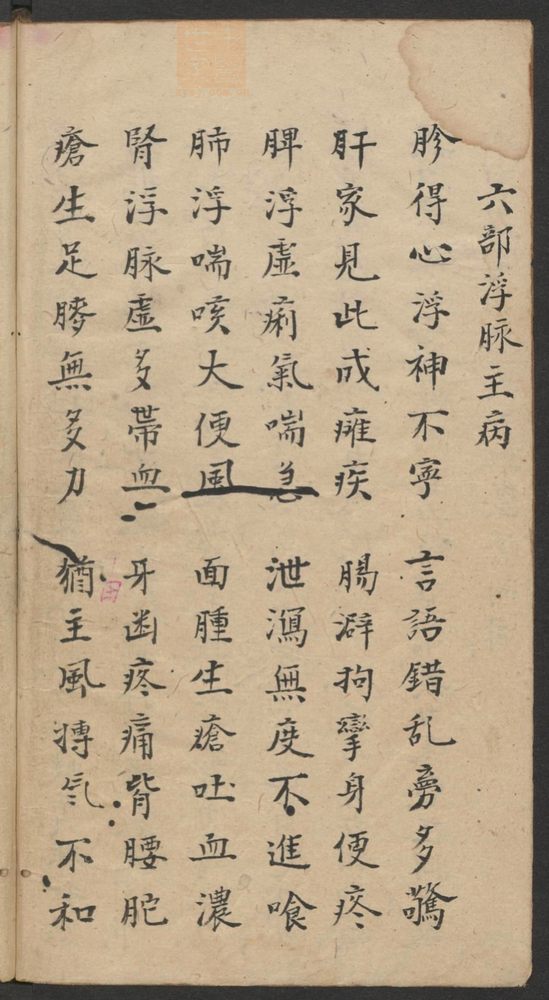 六部浮脉主病
胗得心浮神不寧 言語錯乱旁多驚
肝家見此成瘫疾 腸澼拘攣身便疼
脾浮虚痢氣喘急 泄瀉無度不進喰
肺浮喘咳大便風 面腫生瘡吐血濃
腎浮脉虚多帶血 牙齒疼痛背腰胣
瘡生足膝無多力 猶主風摶氕不和